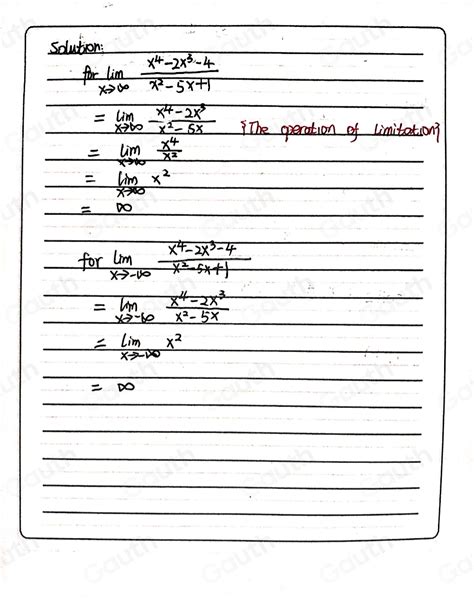 Solution:
for lim x→∞ (x⁴-2x³-4)/(x²-5x+1)
= lim x→∞ (x⁴-2x³)/(x²-5x) {The operation of limitation}
= lim x→∞ x⁴/x²
= lim x→∞ x²
= ∞
for lim x→-∞ (x⁴-2x³-4)/(x²-5x+1)
= lim x→-∞ (x⁴-2x³)/(x²-5x)
= lim x→-∞ x²
= ∞
Gauth